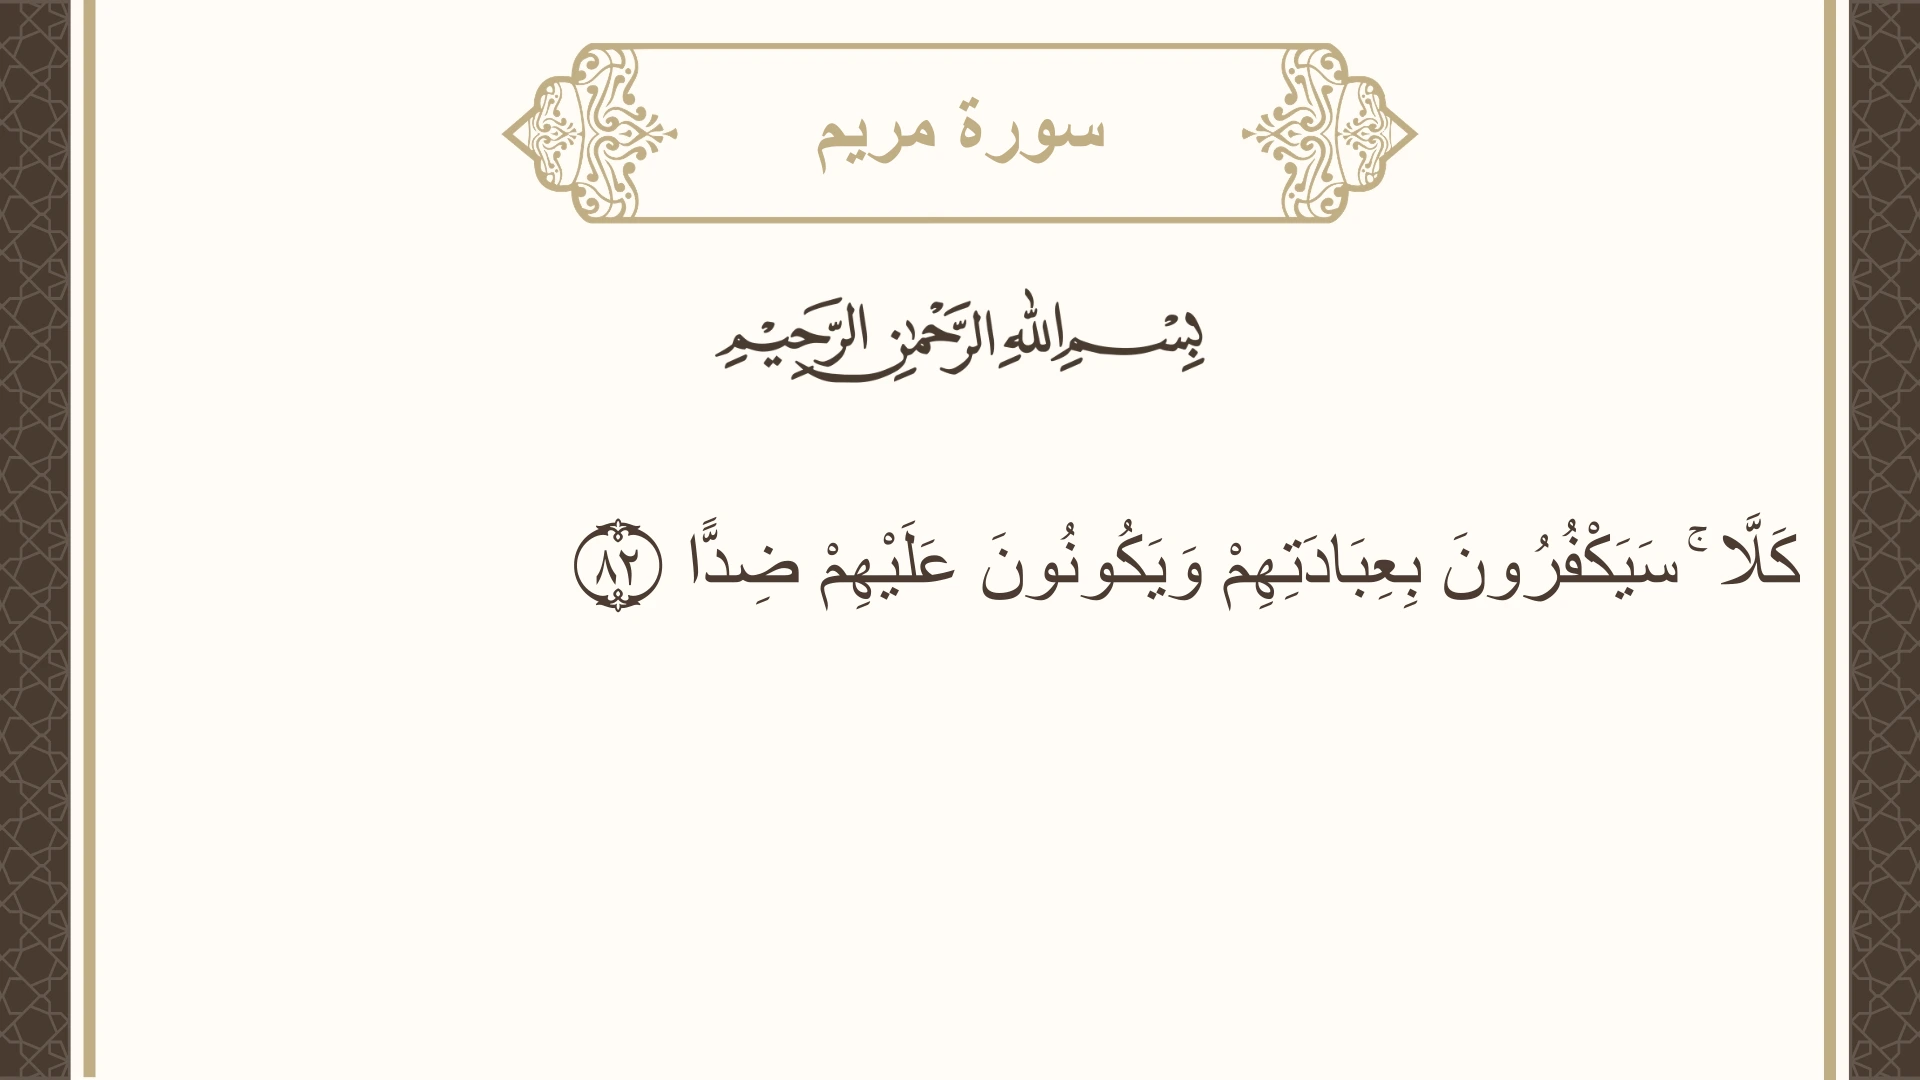 سورة مريم
بِسْمِ اللهِ الرَّحْمٰنِ الرَّحِيْمِ
كَلَّا ۚ سَيَكْفُرُونَ بِعِبَادَتِهِمْ وَيَكُونُونَ عَلَيْهِمْ ضِدًّا ٨٢